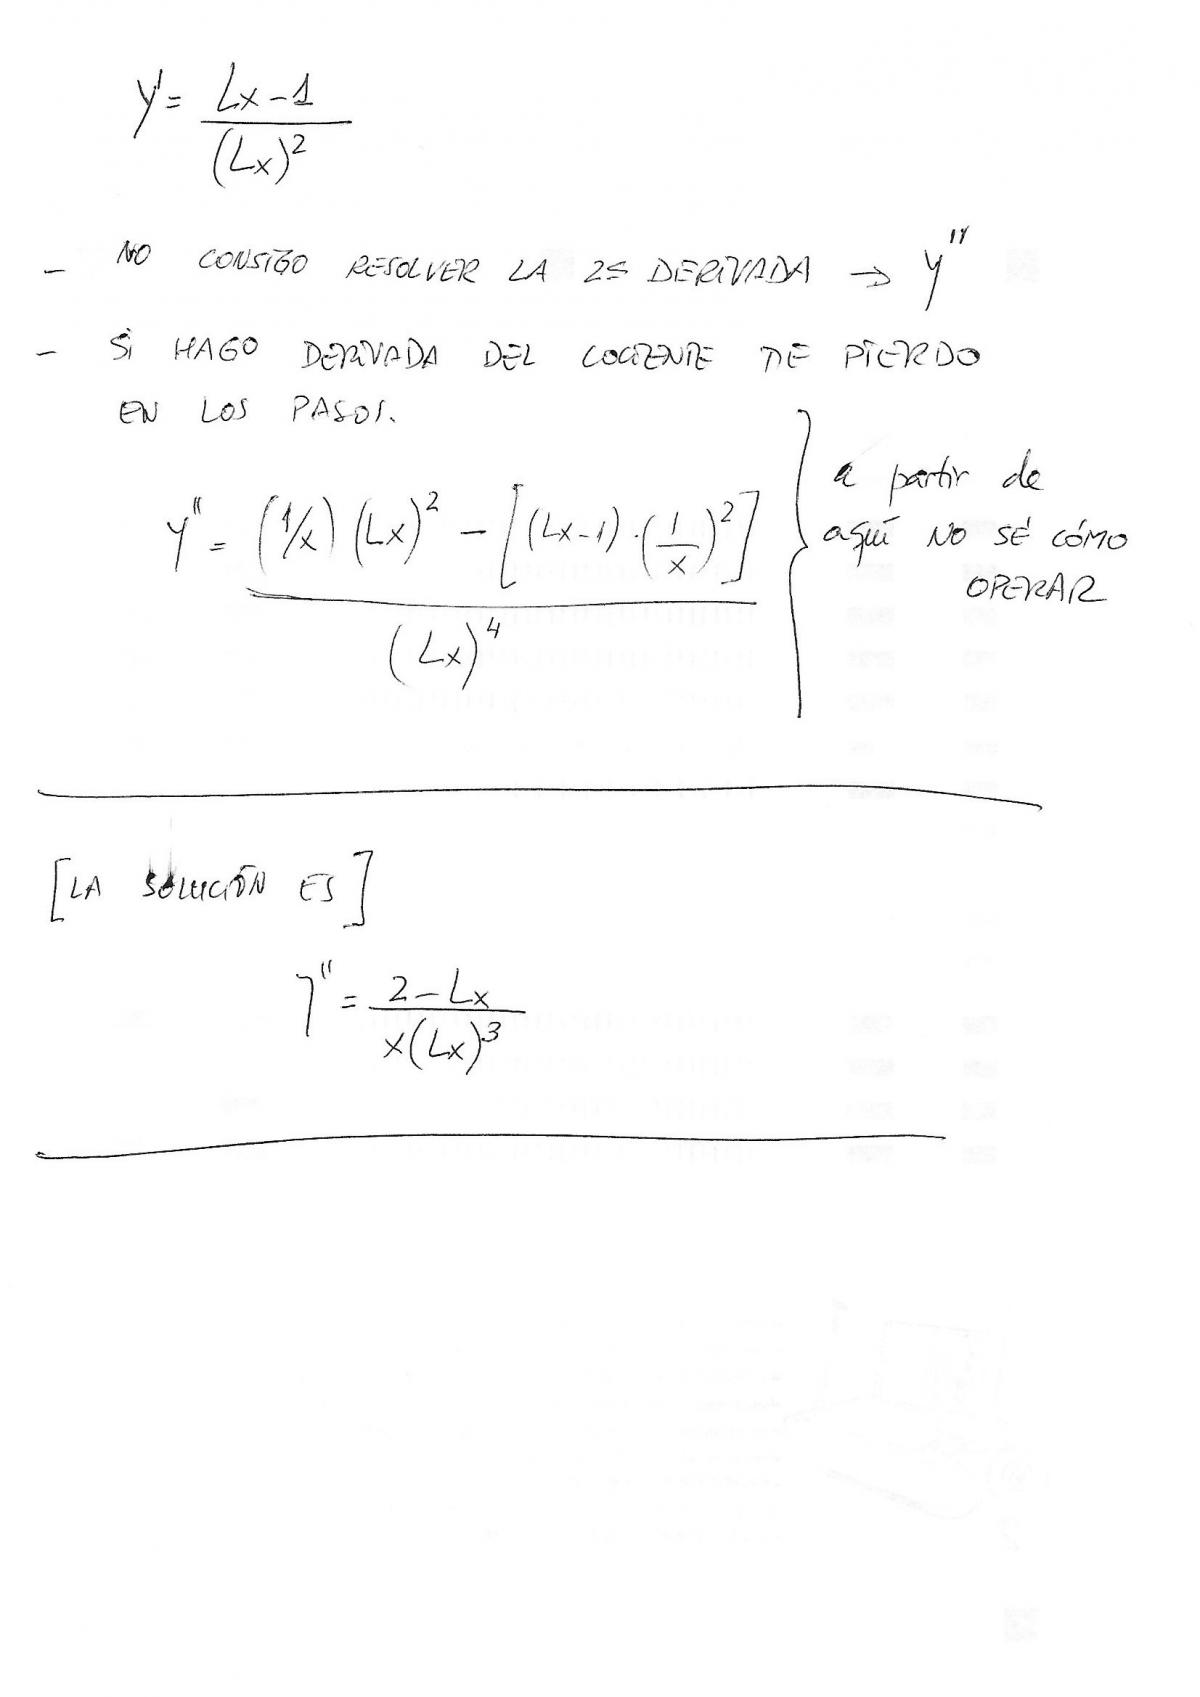 y' = Lx-1 / (Lx)²
- NO CONSIGO RESOLVER LA 2ª DERIVADA → y''
- SI HAGO DERIVADA DEL COCIENTE ME PIERDO
EN LOS PASOS.
y'' = (1/x) (Lx)² - [(Lx-1)·(1/x)²] / (Lx)⁴
a partir de
aquí NO SÉ CÓMO
OPERAR
[LA SOLUCIÓN ES]
y'' = 2-Lx / x(Lx)³